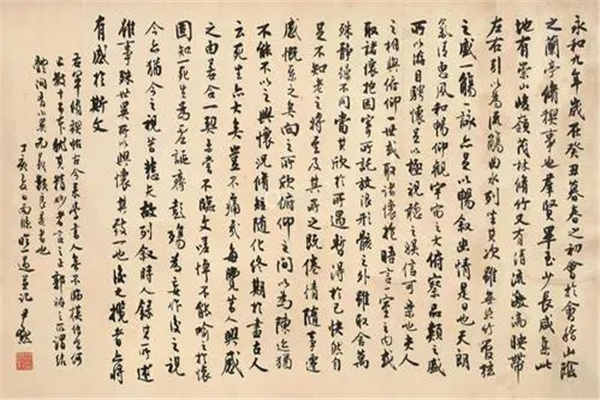 永和九年歲在癸丑暮春之初會於會稽山陰
之蘭亭脩禊事也群賢畢至少長咸集此
地有崇山峻嶺茂林脩竹又有清流激湍映帶
左右引以為流觴曲水列坐其次雖無絲竹管絃
之盛一觴一詠亦足以暢敘幽情是日也天朗
氣清惠風和暢仰觀宇宙之大俯察品類之盛
所以游目騁懷足以極視聽之娛信可樂也夫人
之相與俯仰一世或取諸懷抱悟言一室之內或
取諸懷抱因寄所託放浪形骸之外雖取舍萬
殊靜躁不同當其欣於所遇暫得於己快然自
足不知老之將至及其所之既倦情隨事遷
感慨係之矣向之所欣俯仰之間以為陳迹猶
不能不以之興懷況脩短隨化終期於盡古人
云死生亦大矣豈不痛哉每覽昔人興感
之由若合一契未嘗不臨文嗟悼不能喻之於懷
固知一死生為虛誕齊彭殤為妄作後之視
今亦猶今之視昔悲夫故列敘時人錄其所述
雖事殊世異所以興懷其致一也後之攬者亦將
有感於斯文
右軍脩禊帖古今
丁亥 尹默